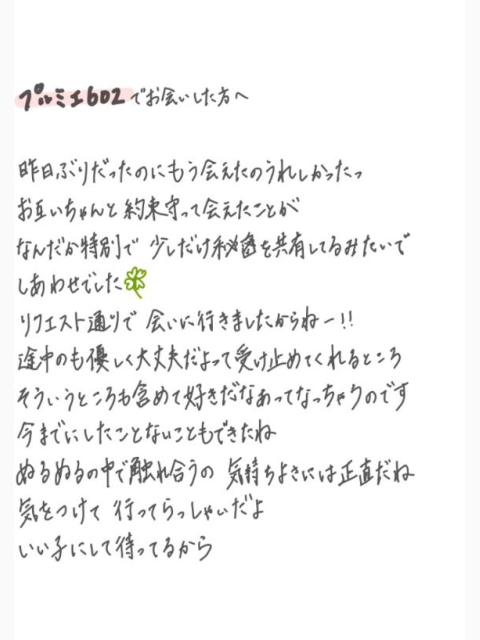 プルミエ602でお会いした方へ
昨日ぶりだったのにもう会えたのうれしかったっ
お互いちゃんと約束守って会えたことが
なんだか特別で 少しだけ秘密を共有してるみたいで
しあわせでした
リクエスト通りで 会いに行きましたからねー!!
途中のも優しく大丈夫だよって受け止めてくれるところ
そういうところも含めて好きだなあってなっちゃうのです
今までにしたことないこともできたね
ぬるぬるの中で触れ合うの 気持ちよさには正直だね
気をつけて 行ってらっしゃいだよ
いい子にして待ってるから